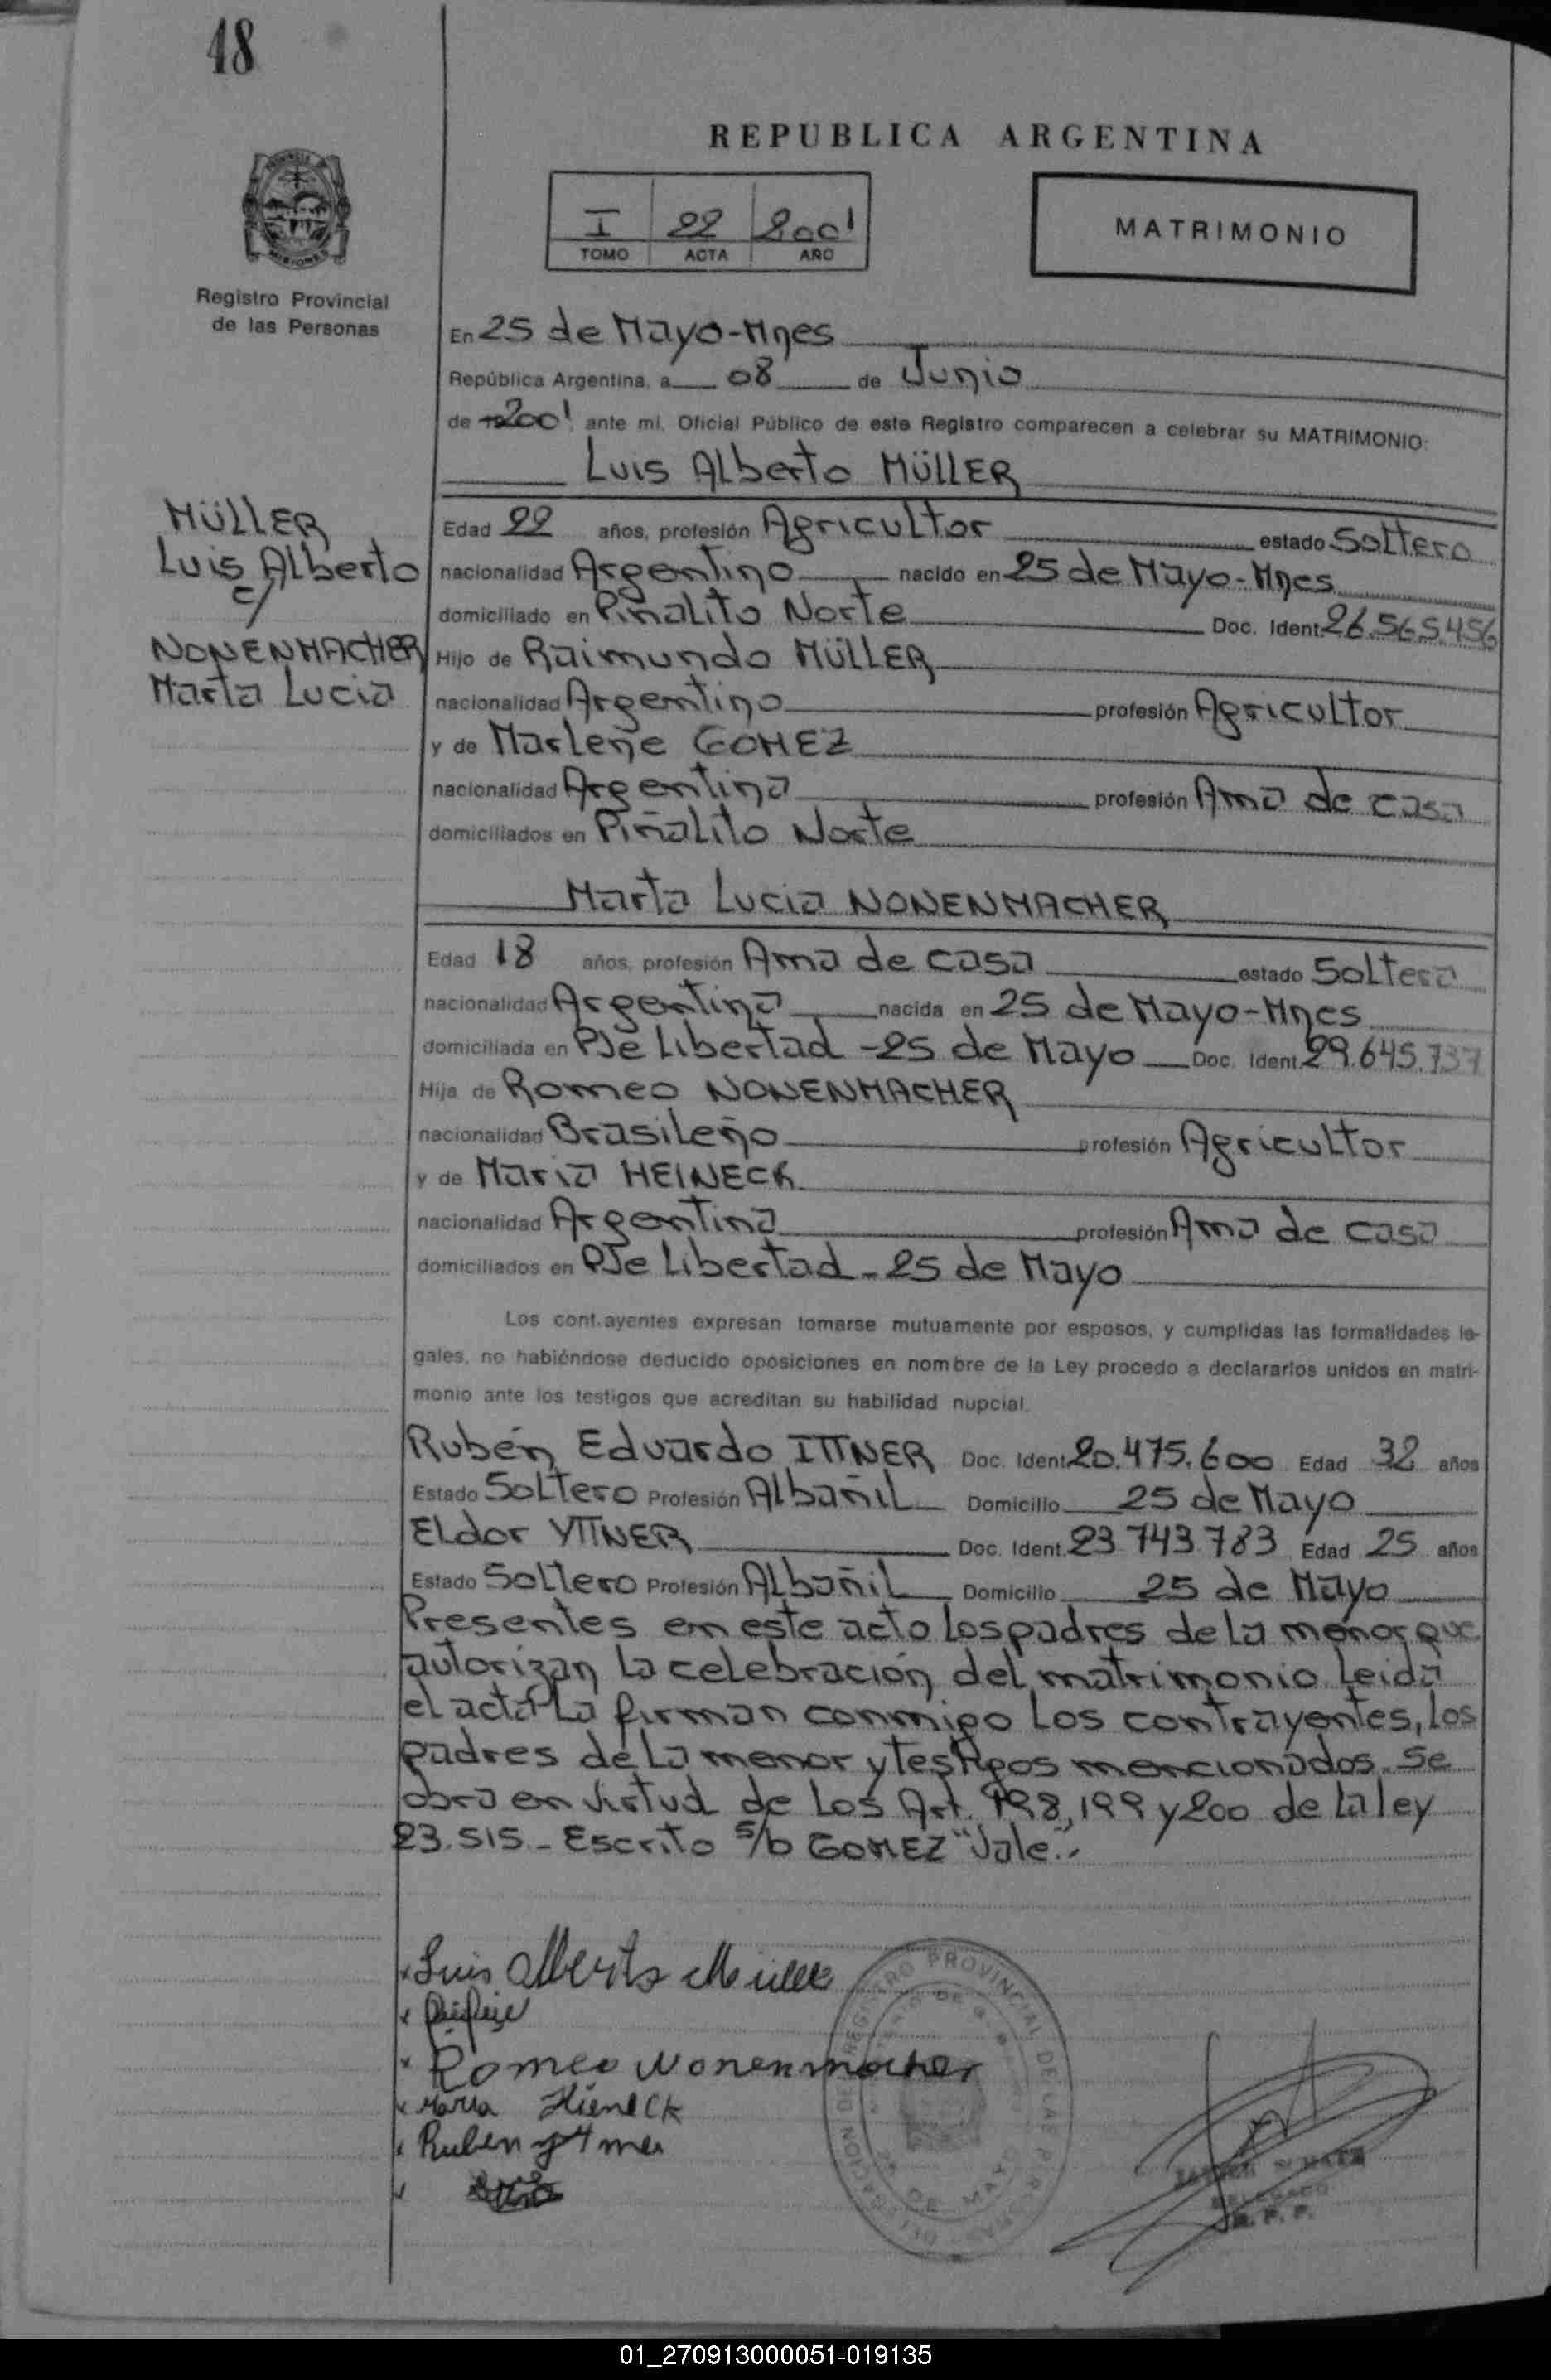 48
REPUBLICA ARGENTINA
I 22 2001
TOMO ACTA AÑO
MATRIMONIO
Registro Provincial
de las Personas
En 25 de Mayo-Mnes
República Argentina, a 08 de Junio
de 2001 ante mi, Oficial Público de este Registro comparecen a celebrar su MATRIMONIO:
Luis Alberto MÜLLER
MÜLLER
Luis Alberto
c/
NONENMACHER
Marta Lucia
Edad 22 años, profesión Agricultor estado Soltero
nacionalidad Argentino nacido en 25 de Mayo-Mnes
domiciliado en Piñalito Norte Doc. Ident. 26.565.456
Hijo de Raimundo MÜLLER
nacionalidad Argentino profesión Agricultor
y de Marlene GOMEZ
nacionalidad Argentina profesión Ama de casa
domiciliados en Piñalito Norte
Marta Lucia NONENMACHER
Edad 18 años, profesión Ama de casa estado Soltera
nacionalidad Argentina nacida en 25 de Mayo-Mnes
domiciliada en PJe Libertad -25 de Mayo Doc. Ident. 29.645.737
Hija de Romeo NONENMACHER
nacionalidad Brasileño profesión Agricultor
y de Maria HEINECK
nacionalidad Argentina profesión Ama de casa
domiciliados en PJe Libertad - 25 de Mayo
Los contrayentes expresan tomarse mutuamente por esposos, y cumplidas las formalidades le-
gales, no habiéndose deducido oposiciones en nombre de la Ley procedo a declararlos unidos en matri-
monio ante los testigos que acreditan su habilidad nupcial.
Rubén Eduardo ITTNER Doc. Ident. 20.475.600 Edad 32 años
Estado Soltero Profesión Albañil Domicilio 25 de Mayo
Eldor YTTNER Doc. Ident. 23 743 783 Edad 25 años
Estado Soltero Profesión Albañil Domicilio 25 de Mayo
Presentes en este acto los padres de la menor que
autorizan la celebración del matrimonio. Leida
el acta la firman conmigo los contrayentes, los
padres de la menor y testigos mencionados. Se
obra en virtud de los Art. 198, 199 y 200 de la ley
23.515.- Escrito s/b GOMEZ "Vale".-
x Luis Alberto Müller
x
x Romeo Nonenmacher
x Maria Hieneck
x Ruben yttner
DELEGADO
R. P. P.
REGISTRO PROVINCIAL DE LAS PERSONAS
25 DE MAYO
01_270913000051-019135